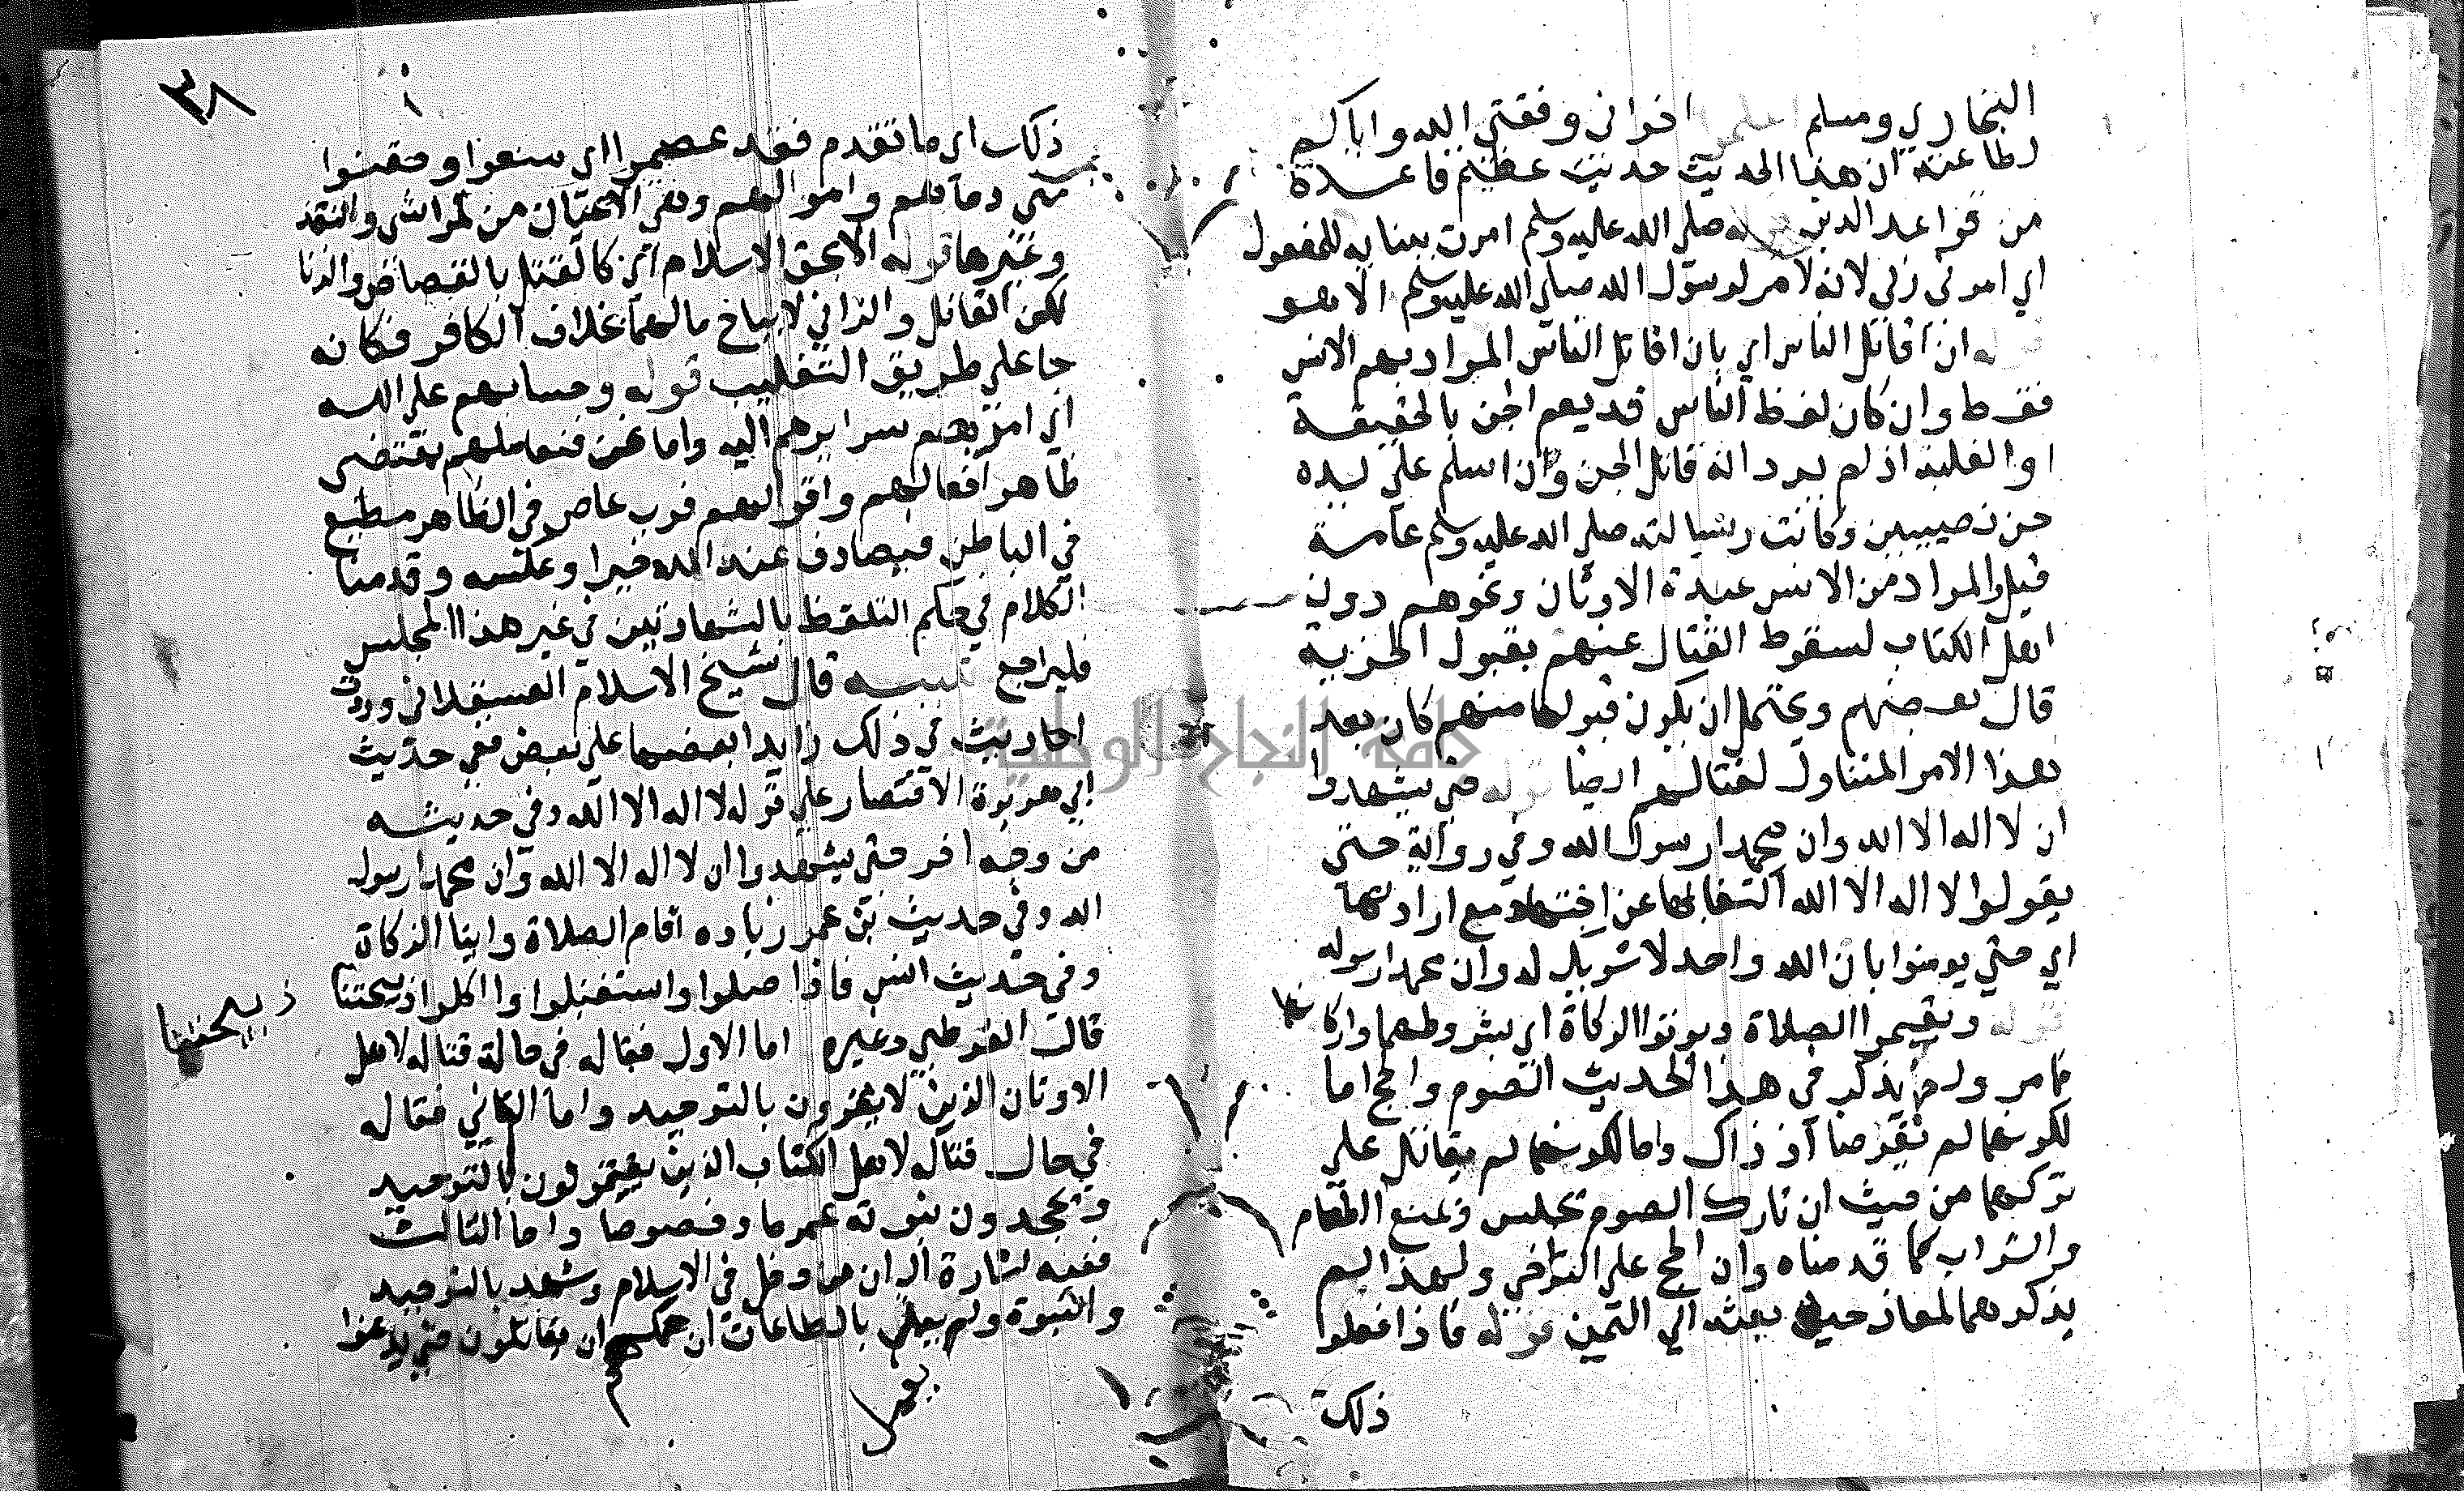 البخاري ومسلم اعلموا اخواني وفقني الله واياكم
لطاعته ان هذا الحديث حديث عظيم قاعدة
من قواعد الدين قوله صلي الله عليه وسلم امرت ببنايه للمفعول
اي امرني ربي لانه لا امر لرسول الله صلي الله عليه وسلم الا هو
قوله ان اقاتل الناس اي بان اقاتل الناس المراد بهم الانس
فقط وان كان لفظ الناس قد يعم الجن بالحقيقة
او الغلبة اذ لم يرد انه قاتل الجن وان اسلم علي يده
جن نصيبين وكانت رسالته صلي الله عليه وسلم عامة
قيل والمراد من الانس عبدة الاوثان ونحوهم دون
اهل الكتاب لسقوط القتال عنهم بقبول الجزية
قال بعضهم ويحتمل ان يكون قبولها منهم كان بعد
هذا الامر المتناول لقتالهم ايضا قوله حتي يشهدوا
ان لا اله الا الله وان محمدا رسول الله وفي رواية حتي
يقولوا لا اله الا الله اكتفا بها عن اختها مع ارادتها
اي حتي يومنوا بان الله واحد لا شريك له وان محمدا رسوله
قوله ويقيموا الصلاة ويوتوا الزكاة اي بشروطهما واركانها
مامر ولم يذكر في هذا الحديث الصوم والحج اما
لكونهما لم يفرضا اذ ذاك واما لكونهما لم يقاتل علي
تركهما من حيث ان تارك الصوم يحبس ويمنع الطعام
والشراب كما قدمناه وان الحج علي التراخي ولهذا لم
يذكرهما لمعاذ حين بعثه الي اليمن قوله فاذا فعلوا
ذلك
٣٨
ذلك اي ما تقدم فقد عصموا اي منعوا وحقنوا
مني دماهم واموالهم وهي الاعيان من المواشي والنقد
وغيرها قوله الا بحق الاسلام اي كالقتل بالقصاص والزنا
لكن القاتل والزاني لا يباح مالهما بخلاف الكافر فكانه
جا علي طريق التغليب قوله وحسابهم علي الله
اي امر بهم سرايرهم اليه واما نحن فنعاملهم بمقتضي
ظاهر افعالهم واقوالهم فرب عاص في الظاهر مطيع
في الباطن فيصادف عند الله خيرا وعكسه وقدمنا
الكلام في حكم التلفظ بالشهادتين في غير هذا المجلس
فليراجع تنبيه قال شيخ الاسلام العسقلاني وردت
احاديث في ذلك زايد ابعضها علي بعض ففي حديث
ابي هريرة الاقتصار علي قوله لا اله الا الله وفي حديثه
من وجه اخر حتي يشهدوا ان لا اله الا الله وان محمدا رسول
الله وفي حديث بن عمر زياده اقام الصلاة وايتا الزكاة
وفي حديث انس فاذا صلوا واستقبلوا واكلوا ذبيحتنا
ذبيحتنا
قال القرطبي وغيره اما الاول فقاله في حالة قتاله لاهل
الاوثان الذين لا يقرون بالتوحيد واما الثاني فقاله
في حال قتاله لاهل الكتاب الذين يقولون بالتوحيد
ويجحدون نبوته عموما وخصوصا واما الثالث
ففيه اشارة الي ان من دخل في الاسلام وشهد بالتوحيد
والنبوة ولم يعمل بالطاعات ان حكمهم ان يقاتلون حتي يذعنوا
يعمل